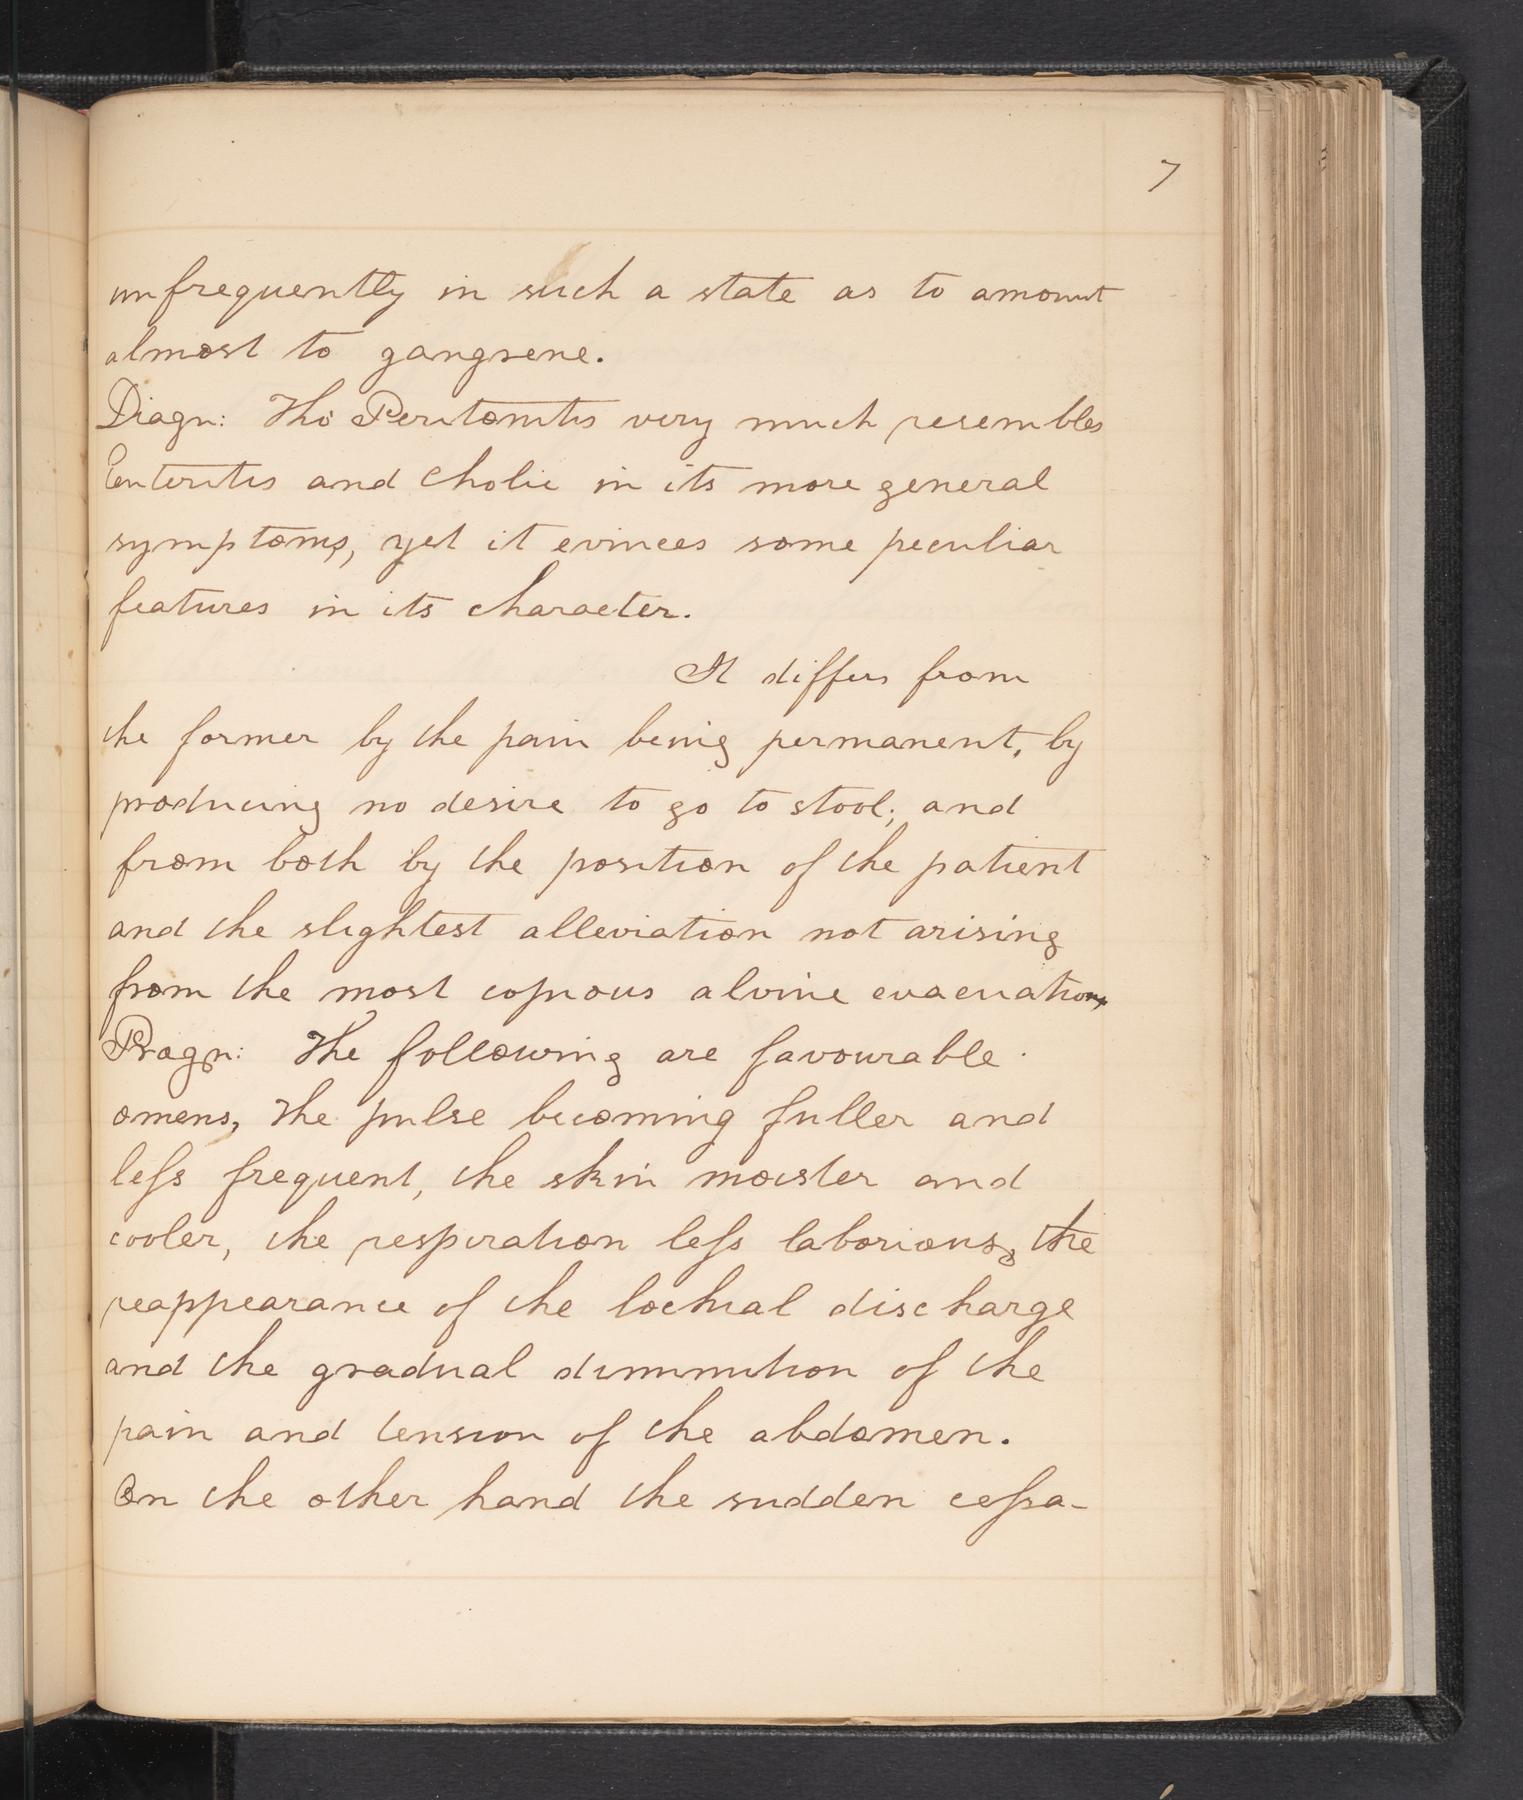 7
unfrequently in such a state as to amount
almost to gangrene.
Diagn: Tho' Peritonitis very much resembles
Enteritis and Cholic in its more general
symptoms, yet it evinces some peculiar
features in its character.
It differs from
the former by the pain being permanent, by
producing no desire to go to stool; and
from both by the position of the patient
and the slightest alleviation not arising
from the most copious alvine evacuations
Progn: The following are favourable
omens, the pulse becoming fuller and
leſs frequent, the skin moister and
cooler, the respiration leſs laborious, the
reappearance of the lochial discharge
and the gradual diminution of the
pain and tension of the abdomen.
On the other hand the sudden ceſsa-